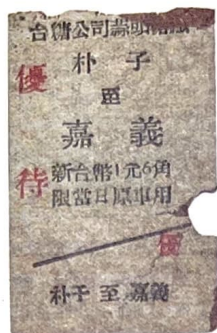 台糖公司
朴子
至
嘉義
新台幣1元6角
限當日原車用
優
待
優
朴子 至 嘉義